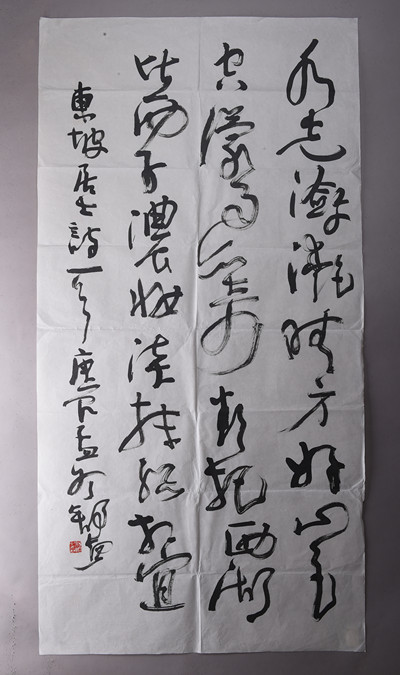 水光瀲灔晴方好山色
空濛雨亦奇欲把西湖
比西子濃妝淡抹總相宜
東坡居士詩一首庚寅孟冬